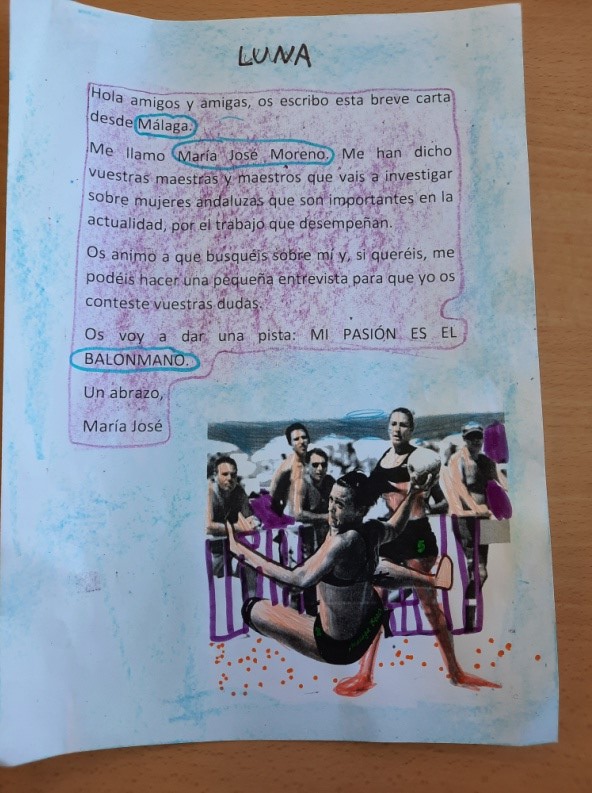 LUNA
Hola amigos y amigas, os escribo esta breve carta
desde Málaga.
Me llamo María José Moreno. Me han dicho
vuestras maestras y maestros que vais a investigar
sobre mujeres andaluzas que son importantes en la
actualidad, por el trabajo que desempeñan.
Os animo a que busquéis sobre mí y, si queréis, me
podéis hacer una pequeña entrevista para que yo os
conteste vuestras dudas.
Os voy a dar una pista: MI PASIÓN ES EL
BALONMANO.
Un abrazo,
María José
5